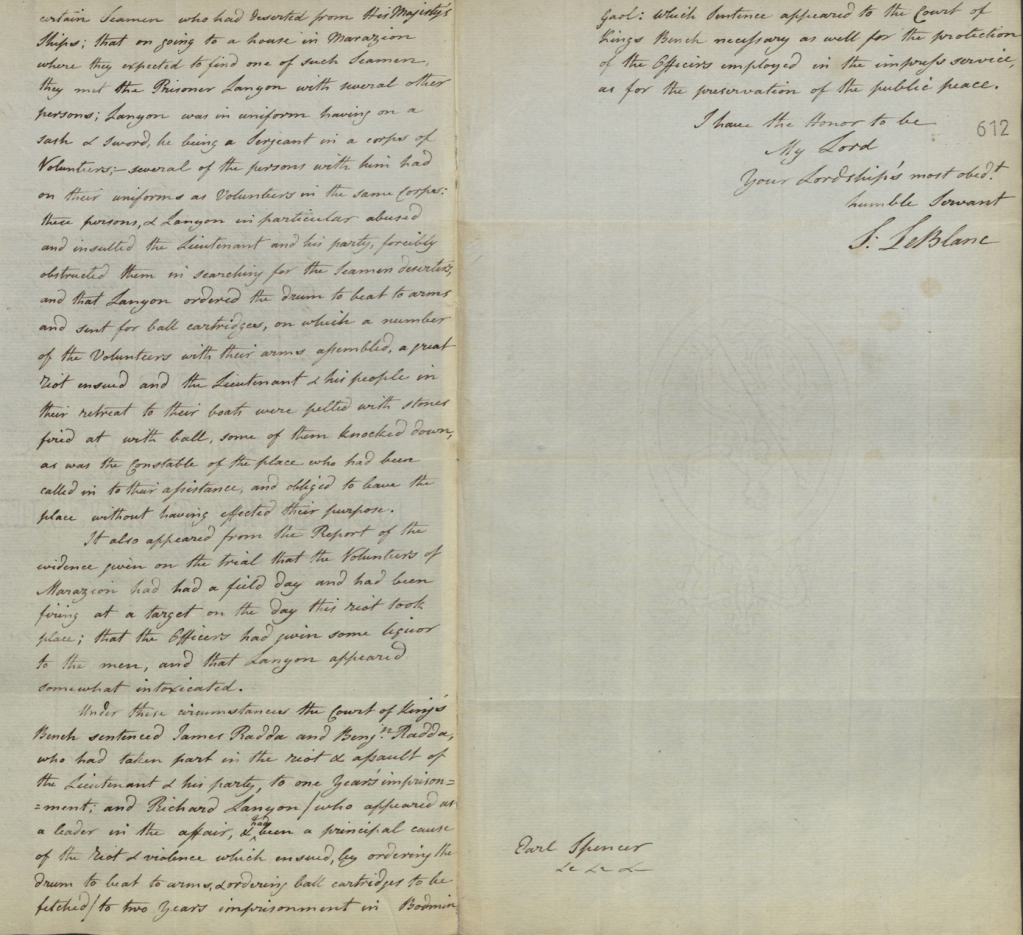 certain Seamen who had deserted from His Majesty's
Ships; that on going to a house in Marazion
where they expected to find one of such Seamen,
they met the Prisoner Lanyon with several other
persons; Lanyon was in uniform having on a
sash & sword, he being a Serjeant in a corps of
Volunteers;- several of the persons with him had
on their uniforms as Volunteers in the same Corps:
these persons, & Lanyon in particular abused
and insulted the Lieutenant and his party, forcibly
obstructed them in searching for the Seamen deserters,
and that Lanyon ordered the drum to beat to arms
and sent for ball cartridges, on which a number
of the Volunteers with their arms assembled, a great
riot ensued and the Lieutenant & his people in
their retreat to their boats were pelted with stones
fired at with ball, some of them knocked down,
as was the Constable of the place who had been
called in to their assistance, and obliged to leave the
place without having effected their purpose.
It also appeared from the Report of the
evidence given on the trial that the Volunteers of
Marazion had had a field day and had been
firing at a target on the day this riot took
place; that the Officers had given some liquor
to the men, and that Lanyon appeared
somewhat intoxicated.
Under these circumstances the Court of King's
Bench sentenced James Radda and Benj.n Radda,
who had taken part in the riot & assault of
the Lieutenant & his party, to one Year's imprison=
=ment; and Richard Lanyon (who appeared as
a leader in the affair, & had been a principal cause
of the riot & violence which ensued, by ordering the
drum to beat to arms, & ordering ball cartridges to be
fetched) to two Years imprisonment in Bodmin
Gaol: which Sentence appeared to the Court of
Kings Bench necessary as well for the protection
of the Officers employed in the impress service,
as for the preservation of the public peace.
I have the Honor to be
612
My Lord
Your Lordship's most obed.t
humble Servant
S: LeBlanc
Earl Spencer
&c &c &c